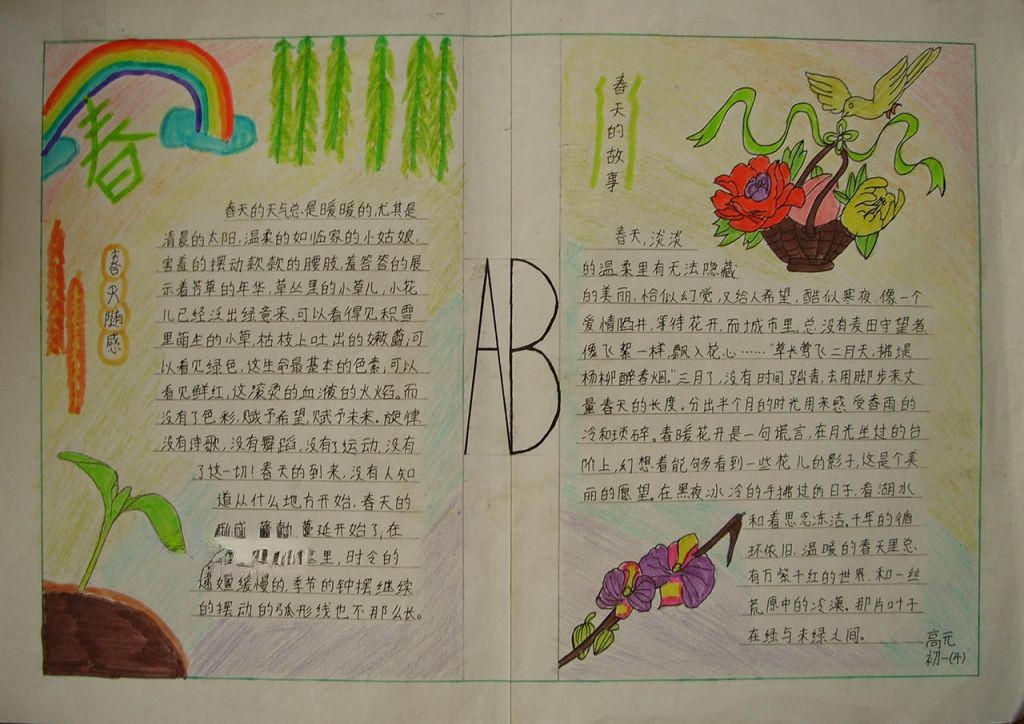 春
春天随感
春天的天气总是暖暖的,尤其是
清晨的太阳,温柔的如临家的小姑娘,
害羞的摆动款款的腰肢,羞答答的展
示着芳草的年华,草丛里的小草儿,小花
儿已经泛出绿意来,可以看得见积雪
里萌生的小草,枯枝上吐出的嫩蕾;可
以看见绿色,这生命最基本的色素;可以
看见鲜红,这滚烫的血液的火焰。而
没有了色彩,赋予希望,赋予未来。旋律
没有诗歌,没有舞蹈,没有了运动,没有
了这一切!春天的到来,没有人知
道从什么地方开始,春天的
蔓延开始了,在
里,时令的
缓慢的,季节的钟摆继续
的摆动的弧形线也不那么长。
AB
春天的故事
春天,淡淡
的温柔里有无法隐藏
的美丽,恰似幻觉,又给人希望,酷似寒夜,像一个
爱情陷井,等待花开,而城市里,总没有麦田守望者
像飞絮一样,飘入花心……“草长莺飞二月天,拂堤
杨柳醉春烟。”三月了,没有时间踏青,去用脚步来丈
量春天的长度。分出半个月的时光用来感受春雨的
冷和琐碎。春暖花开是一句谎言,在月光坐过的台
阶上,幻想着能够看到一些花儿的影子,这是个美
丽的愿望。在黑夜冰冷的手拂过的日子,看湖水
和着思念冻洁。千年的循
环依旧,温暖的春天里总
有万紫千红的世界,和一丝
荒原中的冷漠。那片叶子
在绿与未绿之间。
高元
初一(4)